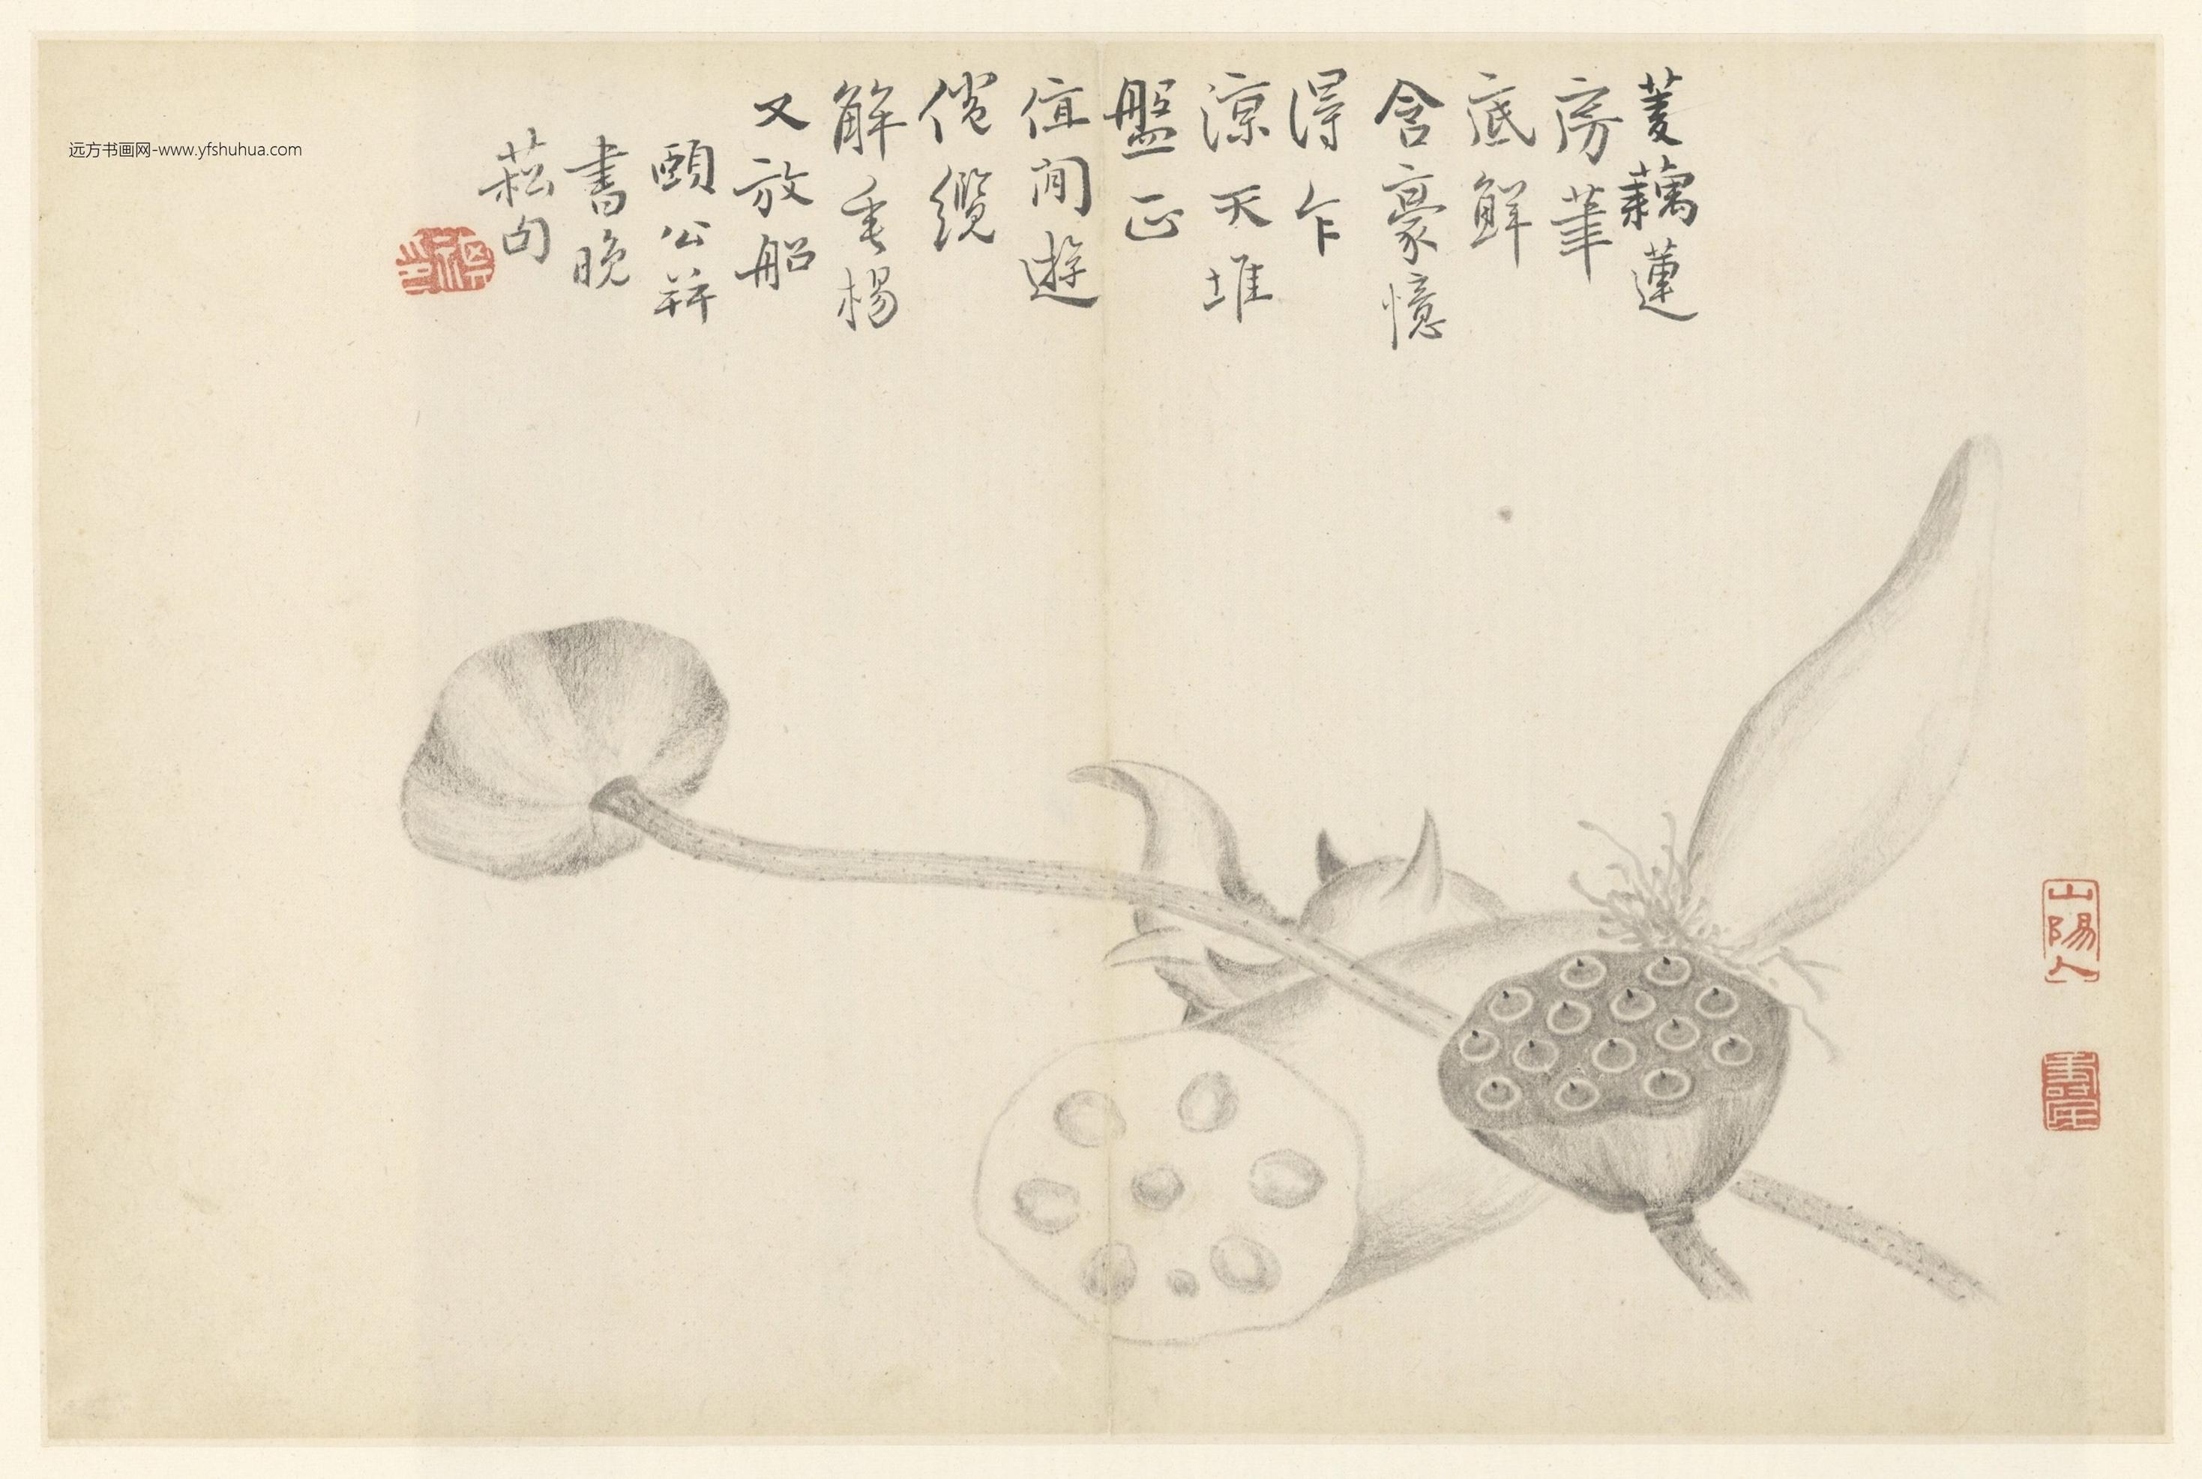 菱藕蓮
房筆
底鮮
含豪憶
得乍
涼天堆
盤正
值閒遊
倦纜
解垂楊
又放船
頤公并
書晚
菘句
山陽人
壽民
远方书画网-www.yfshuhua.com